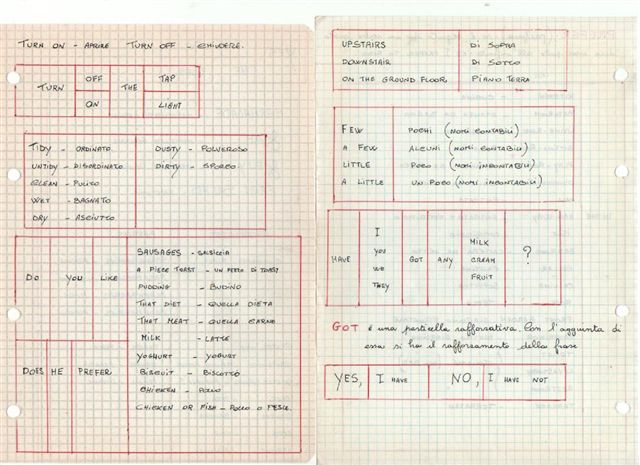 TURN ON - APRIRE TURN OFF - CHIUDERE.
TURN OFF THE TAP
ON LIGHT
TIDY - ORDINATO
UNTIDY - DISORDINATO
CLEAN - PULITO
WET - BAGNATO
DRY - ASCIUTTO
DUSTY - POLVEROSO
DIRTY - SPORCO
DO YOU LIKE
DOES HE PREFER
SAUSAGES - SALSICCIA
A PIECE TOAST - UN PEZZO DI TOAST
PUDDING - BUDINO
THAT DIET - QUELLA DIETA
THAT MEAT - QUELLA CARNE
MILK - LATTE
YOGHURT - YOGURT
BISCUIT - BISCOTTO
CHICKEN - POLLO
CHICKEN OR FISH - POLLO O PESCE.
UPSTAIRS DI SOPRA
DOWNSTAIR DI SOTTO
ON THE GROUND FLOOR PIANO TERRA
FEW POCHI (NOMI CONTABILI)
A FEW ALCUNI (NOMI CONTABILI)
LITTLE POCO (NOMI INCONTABILI)
A LITTLE UN POCO (NOMI INCONTABILI)
HAVE I YOU WE THEY GOT ANY MILK CREAM FRUIT ?
GOT è una particella rafforzativa. Con l'aggiunta di
essa si ha il rafforzamento della frase
YES, I HAVE NO, I HAVE NOT